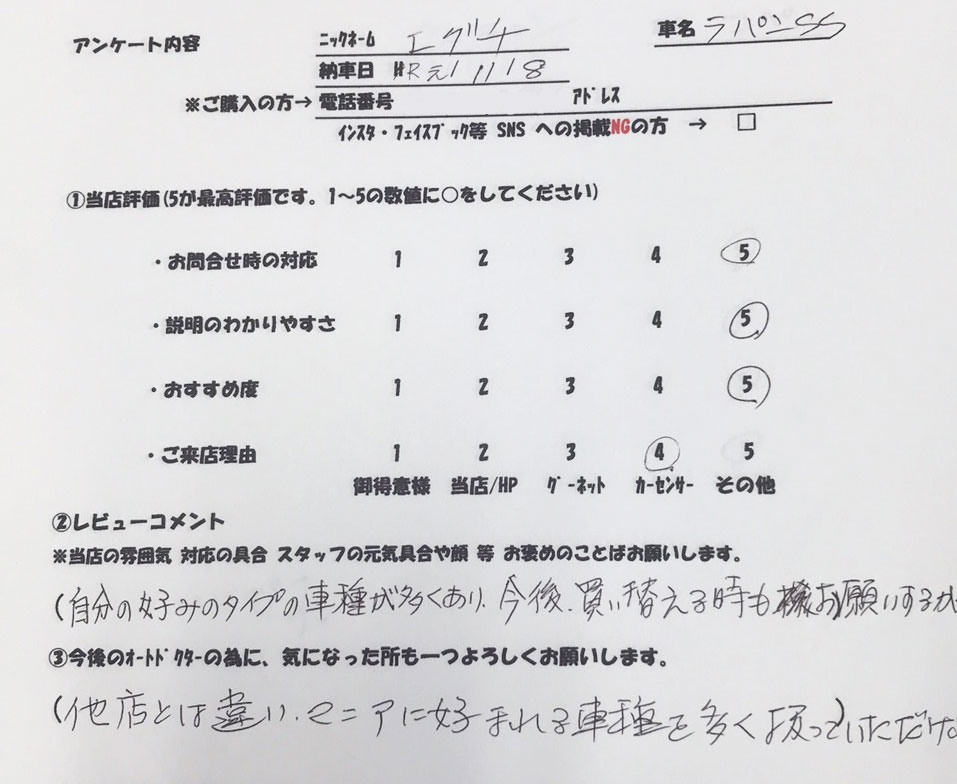 アンケート内容
ニックネーム エグチ
車名 ラパンSS
納車日 HR元 11/18
※ご購入の方→ 電話番号 アドレス
インスタ・フェイスブック等 SNS への掲載NGの方 → □
①当店評価(5が最高評価です。1〜5の数値に○をしてください)
・お問合せ時の対応 1 2 3 4 5
・説明のわかりやすさ 1 2 3 4 5
・おすすめ度 1 2 3 4 5
・ご来店理由 1 2 3 4 5
御得意様 当店/HP グーネット カーセンサー その他
②レビューコメント
※当店の雰囲気 対応の具合 スタッフの元気具合や顔 等 お褒めのことばお願いします。
(自分の好みのタイプの車種が多くあり、今後、買い替える時も お願いするか
③今後のオートドクターの為に、気になった所も一つよろしくお願いします。
(他店とは違い、マニアに好まれる車種を多く扱っていただけ